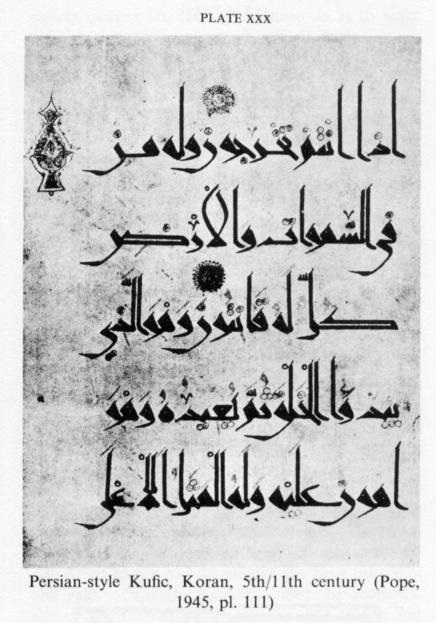 PLATE XXX
اذا انتم تخرجون وله من
في السموات والارض
كل له قانتون وهو الذي
يبدؤا الخلق ثم يعيده وهو
اهون عليه وله المثل الاعلى
Persian-style Kufic, Koran, 5th/11th century (Pope,
1945, pl. 111)